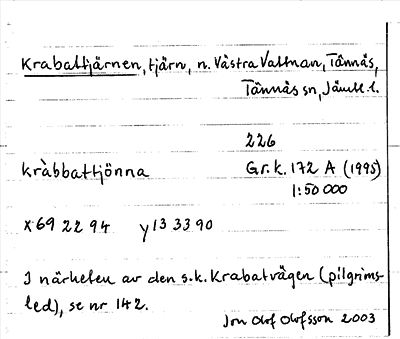 Krabattjärnen, tjärn, n. Västra Vattnan, Tännäs,
Tännäs sn, Jämtl l.
226
kràbbattjönna Gr.k. 172 A (1995)
1:50 000
x 69 22 94 y 13 33 90
I närheten av den s.k. Krabatvägen (pilgrims-
led), se nr 142.
Jon Olof Olofsson 2003